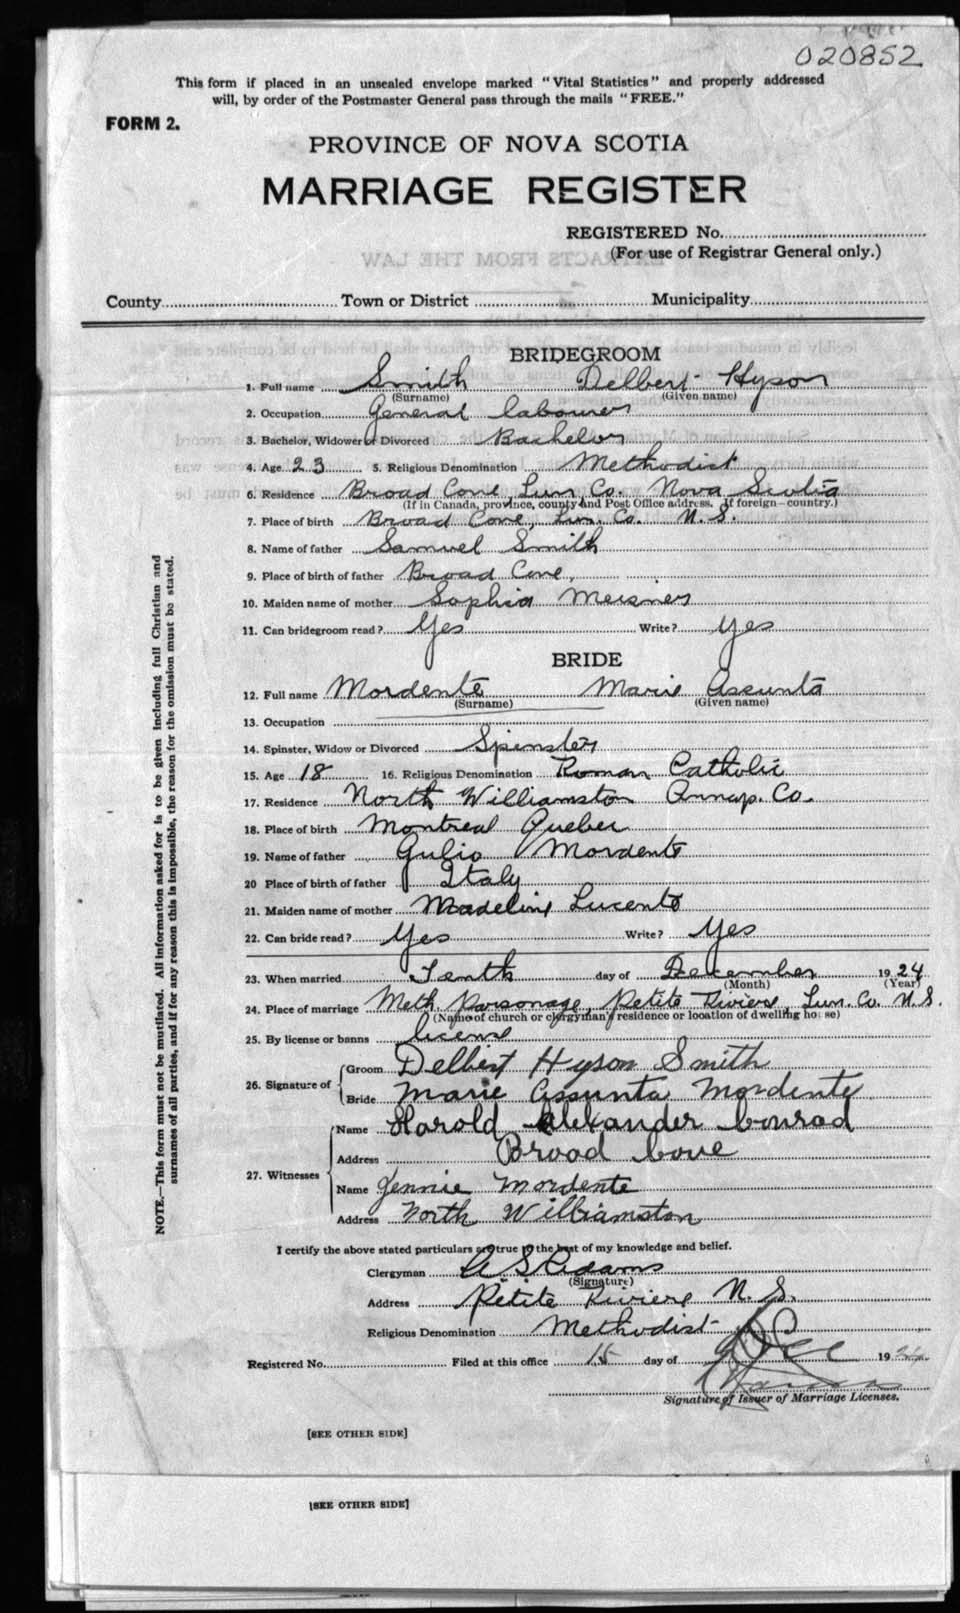 020852
This form if placed in an unsealed envelope marked "Vital Statistics" and properly addressed
will, by order of the Postmaster General pass through the mails "FREE."
FORM 2.
PROVINCE OF NOVA SCOTIA
MARRIAGE REGISTER
REGISTERED No.
(For use of Registrar General only.)
EXTRACTS FROM THE LAW
County Town or District Municipality
BRIDEGROOM
1. Full name Smith Delbert Hyson
(Surname) (Given name)
2. Occupation General labourer
3. Bachelor, Widower or Divorced Bachelor
4. Age 23 5. Religious Denomination Methodist
6. Residence Broad Cove, Lun Co. Nova Scotia
(If in Canada, province, county and Post Office address. If foreign—country.)
7. Place of birth Broad Cove, Lun. Co. N.S.
8. Name of father Samuel Smith
9. Place of birth of father Broad Cove,
10. Maiden name of mother Sophia Meisner
11. Can bridegroom read? Yes Write? Yes
BRIDE
12. Full name Mordente Marie Assunta
(Surname) (Given name)
13. Occupation
14. Spinster, Widow or Divorced Spinster
15. Age 18 16. Religious Denomination Roman Catholic
17. Residence North Williamston Annap. Co.
18. Place of birth Montreal Quebec
19. Name of father Gulio Mordente
20 Place of birth of father Italy
21. Maiden name of mother Madeline Lucente
22. Can bride read? Yes Write? Yes
23. When married Tenth day of December 1924
(Month) (Year)
24. Place of marriage Meth. Parsonage, Petite Riviere, Lun. Co. N.S.
(Name of church or clergyman's residence or location of dwelling house)
25. By license or banns license
26. Signature of Groom Delbert Hyson Smith
Bride Marie Assunta Mordente
27. Witnesses Name Harold Alexander Conrad
Address Broad Cove
Name Jennie Mordente
Address North Williamston
I certify the above stated particulars are true to the best of my knowledge and belief.
Clergyman A S Adams
(Signature)
Address Petite Riviere N.S.
Religious Denomination Methodist
Registered No. Filed at this office 15 day of Dec 1924
Signature of Issuer of Marriage Licenses.
[SEE OTHER SIDE]
[SEE OTHER SIDE]
NOTE.—This form must not be mutilated. All information asked for is to be given including full Christian and
surnames of all parties, and if for any reason this is impossible, the reason for the omission must be stated.